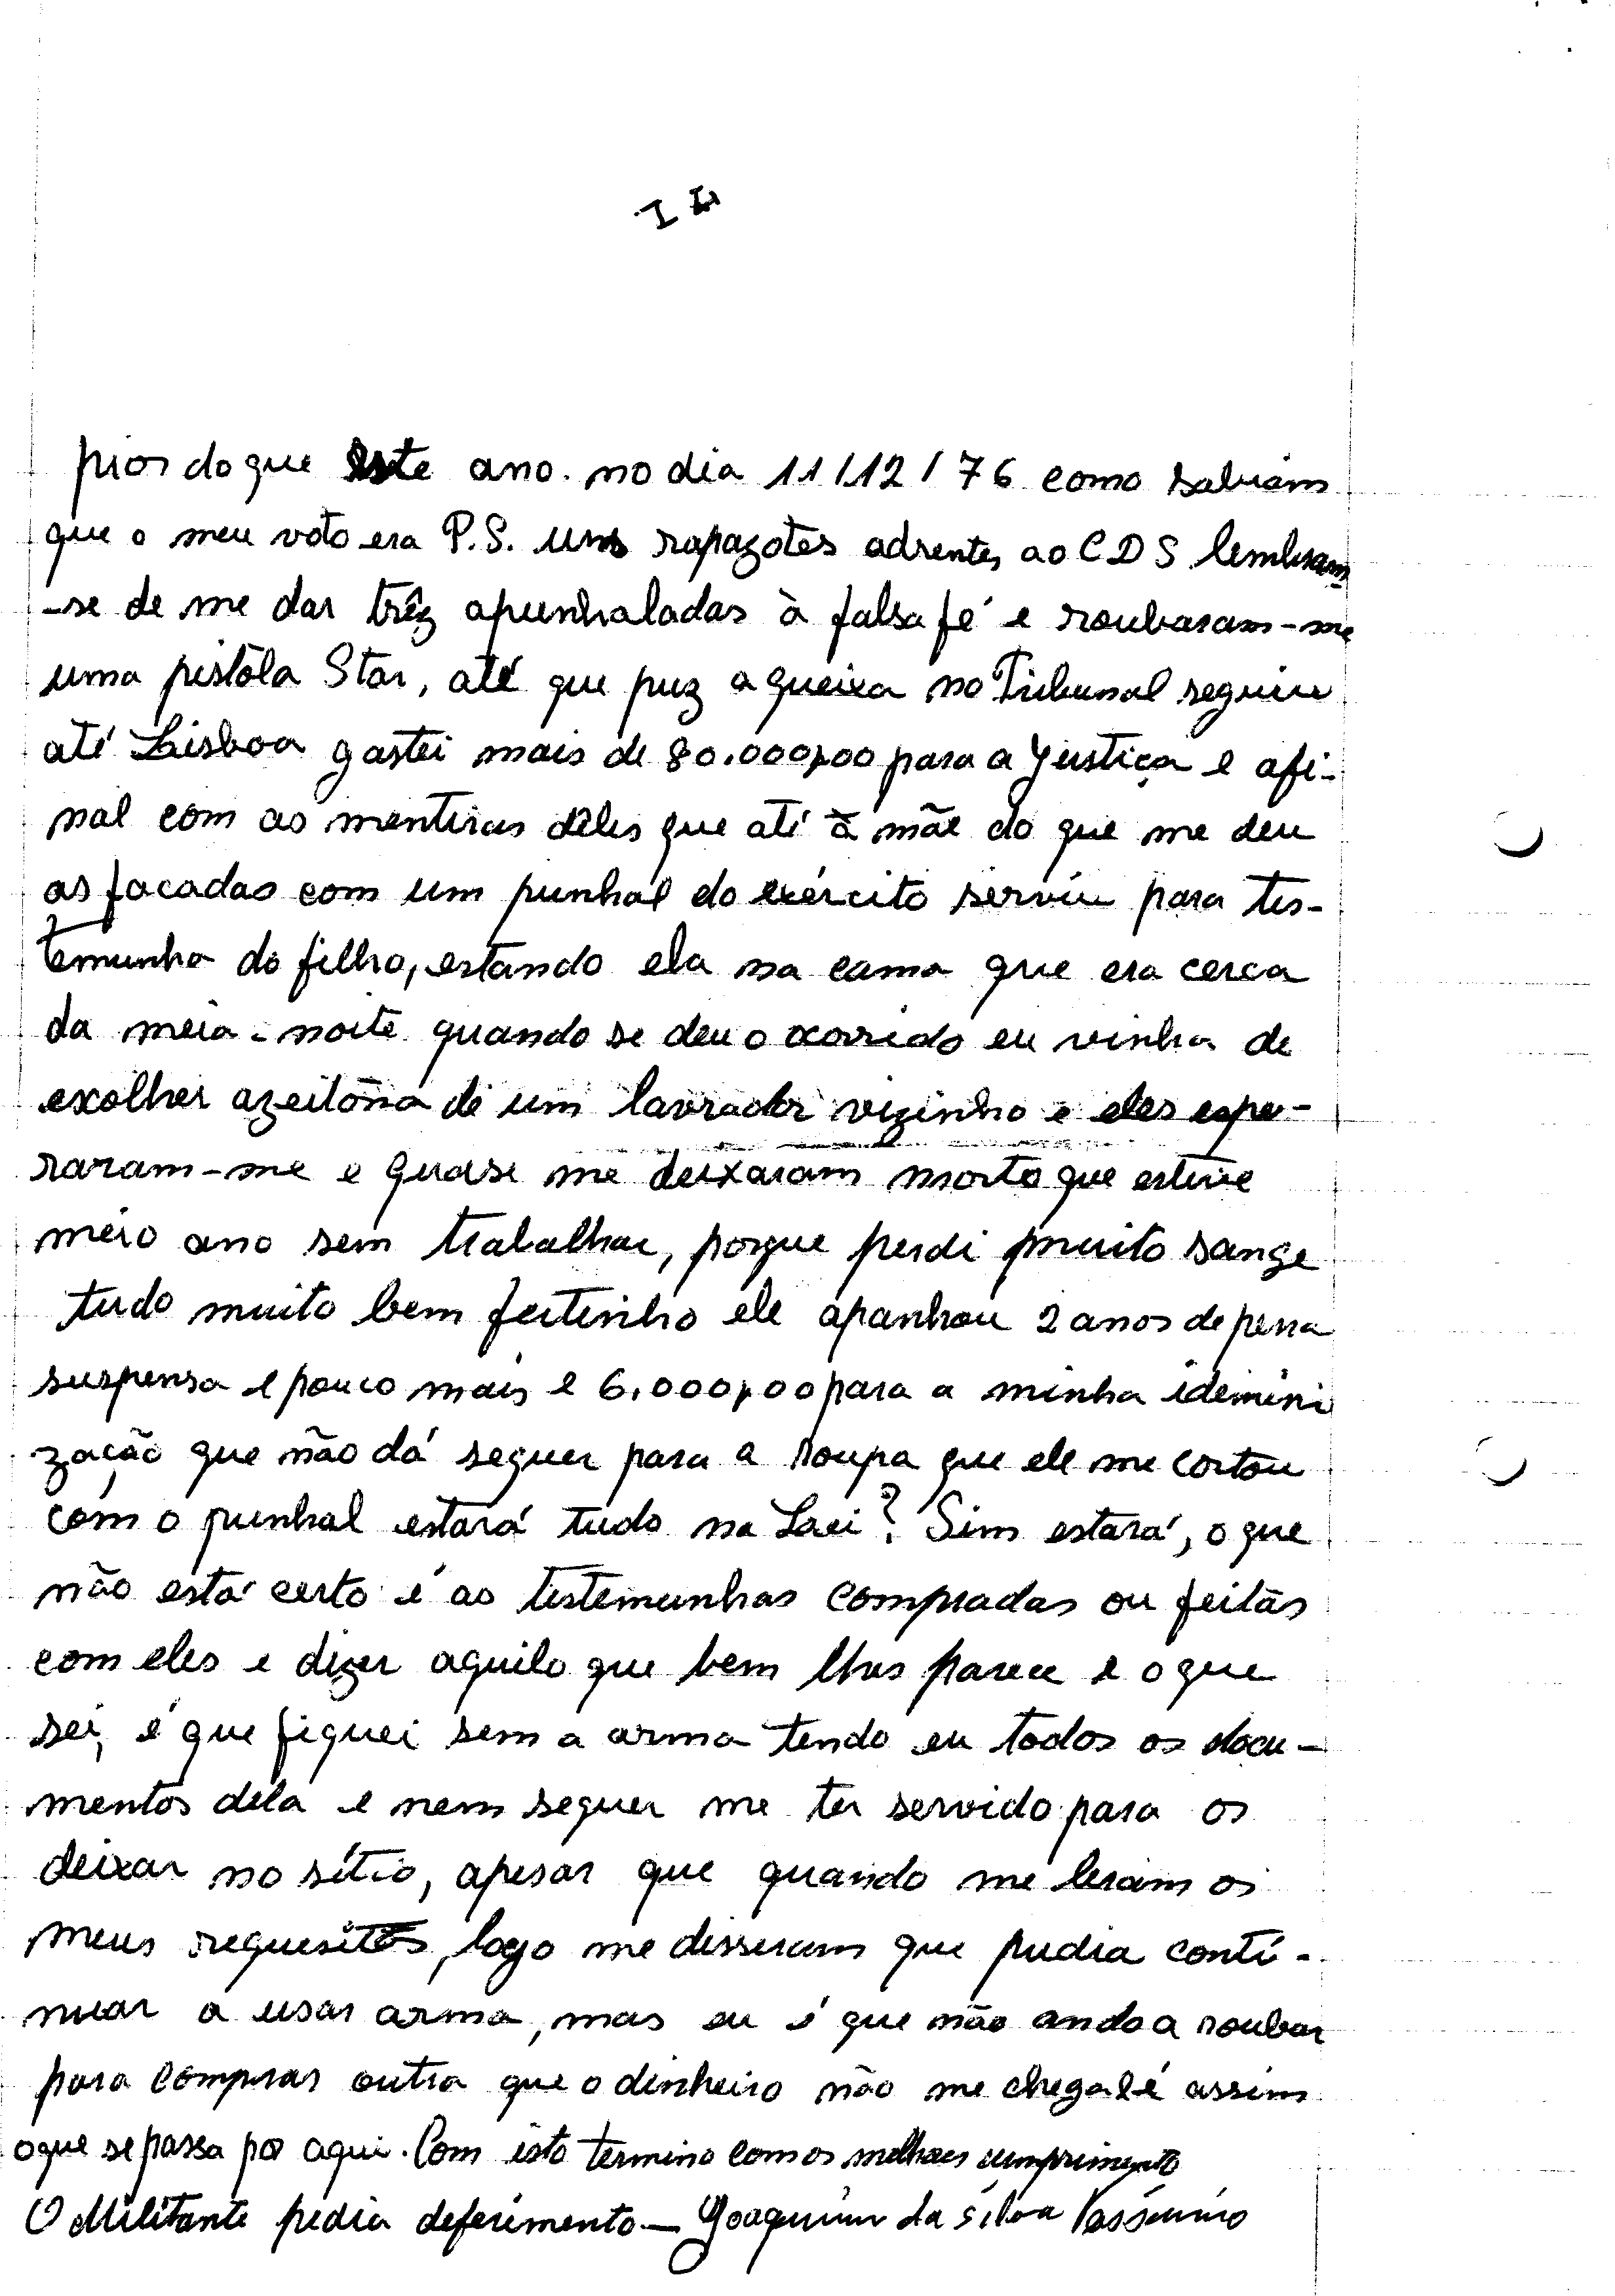 II
pior do que este ano. no dia 11/12/76 como sabiam
que o meu voto era P.S. uns rapazotes adrentes ao CDS lembram
-se de me dar três apunhaladas à falsa fé e roubaram-me
uma pistola Star, até que puz a queixa no Tribunal seguiu
até Lisboa gastei mais de 80.000$00 para a Justiça e afi-
nal com as mentiras deles que até à mãe do que me deu
as facadas com um punhal do exército serviu para tes-
temunha do filho, estando ela na cama que era cerca
da meia-noite quando se deu o ocorrido eu vinha de
escolher azeitona de um lavrador vizinho e eles espe-
raram-me e quase me deixaram morto que estive
meio ano sem trabalhar, porque perdi muito sange
tudo muito bem feitinho ele apanhou 2 anos de pena
suspensa e pouco mais e 6.000$00 para a minha idemini
zação que não dá sequer para a roupa que ele me cortou
com o punhal estará tudo na Lei? Sim estará, o que
não está certo é as testemunhas compradas ou feitas
com eles e dizer aquilo que bem lhes parece e o que
sei, é que fiquei sem a arma tendo eu todos os docu-
mentos dela e nem sequer me ter servido para os
deixar no sítio, apesar que quando me leram os
meus requesitos, logo me disseram que pudia conti-
nuar a usar arma, mas eu é que não ando a roubar
para comprar outra que o dinheiro não me chega e é assim
o que se passa por aqui. Com isto termino com os melhores cumprimento
O Militante pedia deferimento — Joaquim da Silva